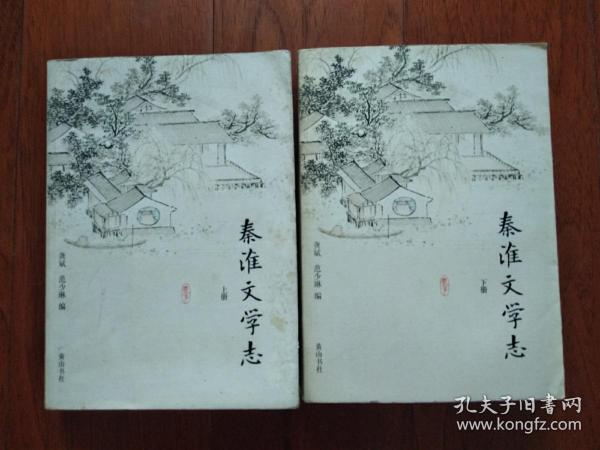 秦淮文学志
上册
龚斌 范少琳 编
黄山书社
秦淮文学志
下册
龚斌 范少琳 编
黄山书社
孔夫子旧书网
www.kongfz.com